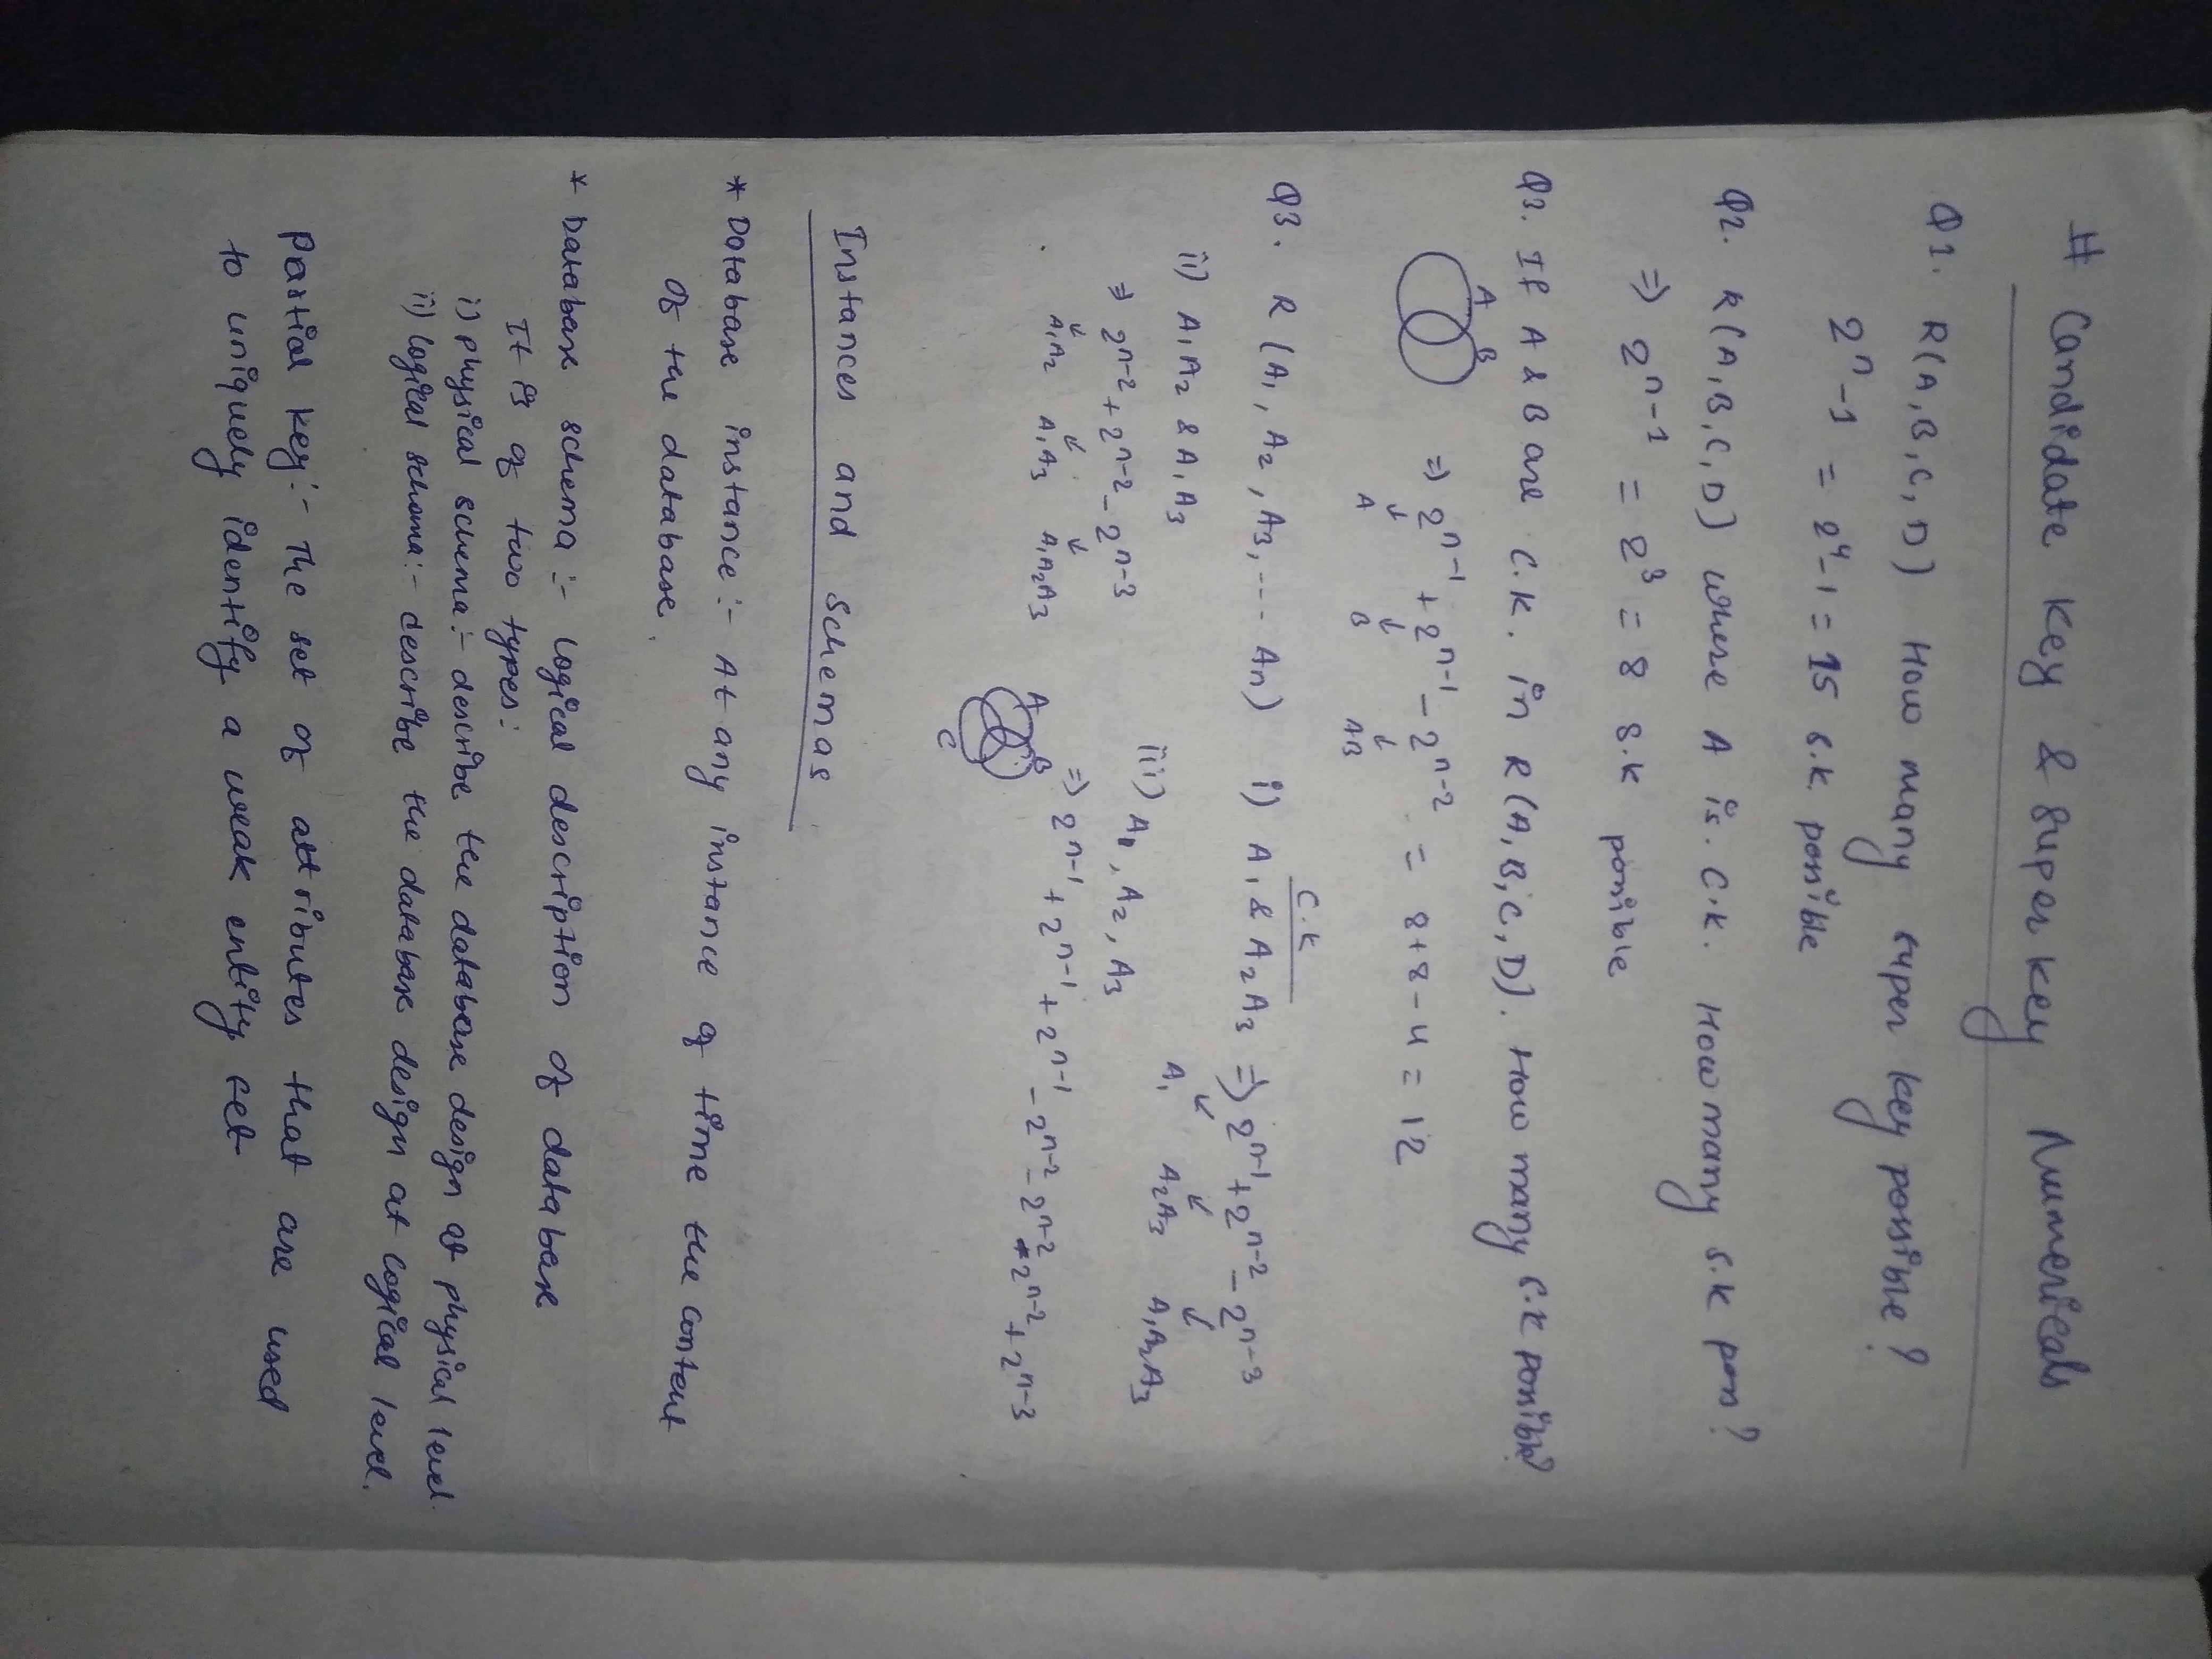 # Candidate Key & Super Key Numericals
Q1. R(A,B,C,D) How many super key possible?
2^n-1 = 2^4-1 = 15 S.K. possible
Q2. R(A,B,C,D) where A is C.K. How many S.K poss?
=> 2^n-1 = 2^3 = 8 S.K possible
Q3. If A & B are C.K. in R(A,B,C,D). How many S.K possible?
A B => 2^n-1 + 2^n-1 - 2^n-2 = 8+8-4 = 12
A B AB
C.K
Q3. R(A1, A2, A3, --- An) i) A1 & A2A3 => 2^n-1 + 2^n-2 - 2^n-3
A1 A2A3 A1A2A3
ii) A1A2 & A1A3
=> 2^n-2 + 2^n-2 - 2^n-3
A1A2 A1A3 A1A2A3
iii) A1, A2, A3
=> 2^n-1 + 2^n-1 + 2^n-1 - 2^n-2 - 2^n-2 - 2^n-2 + 2^n-3
A B
C
Instances and Schemas
* Database instance :- At any instance of time the content
of the database.
* Database schema :- logical description of database
It is of two types :
i) physical schema :- describe the database design at physical level.
ii) logical schema :- describe the database design at logical level.
Partial Key :- The set of attributes that are used
to uniquely identify a weak entity set